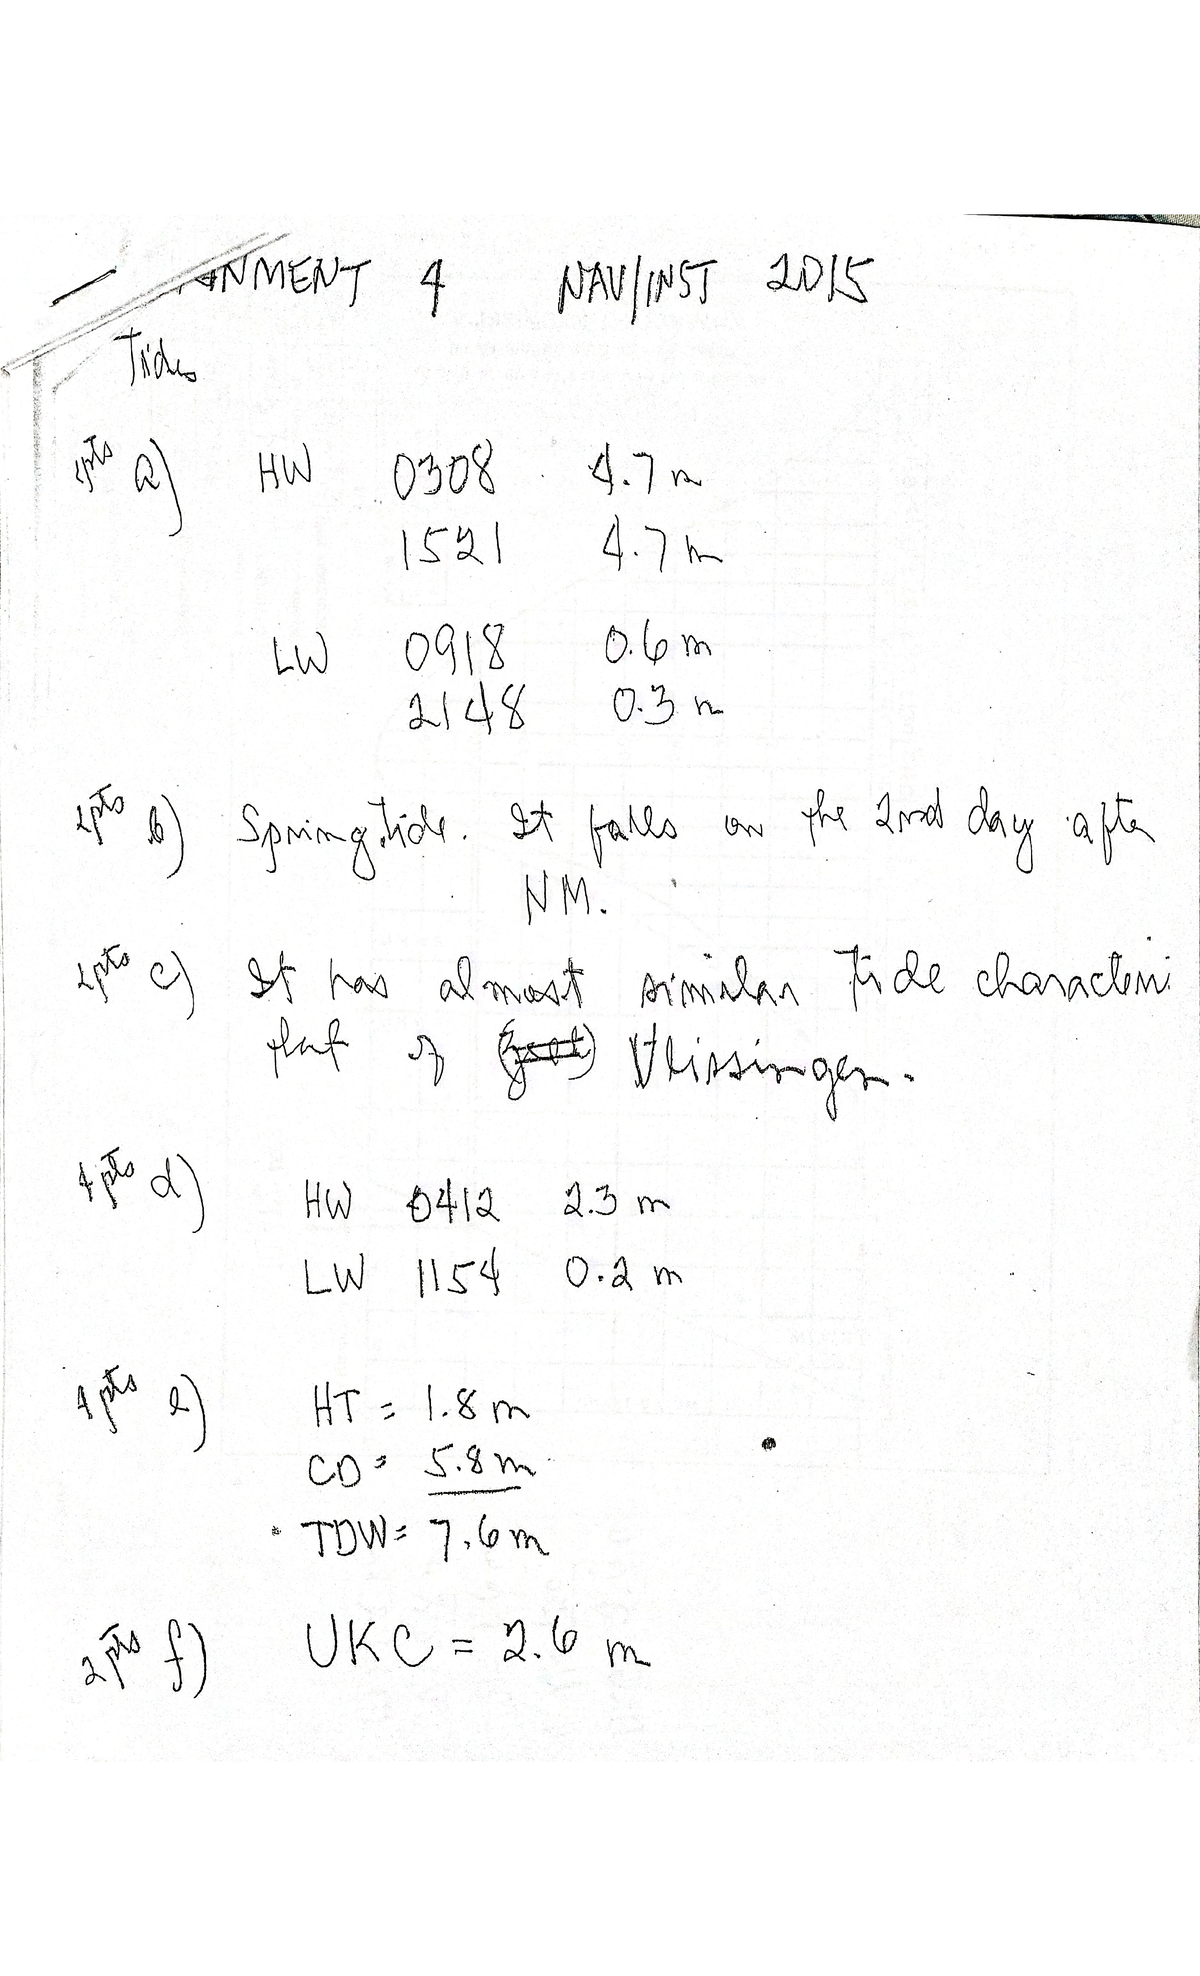 NMENT 4 NAV/INST 2015
Tides
pts a) HW 0308 4.7 m
1521 4.7 m
LW 0918 0.6 m
2148 0.3 m
pts b) Spring tide. It falls on the 2nd day after
NM.
pts c) It has almost similar tide characteri
that of Vlissingen.
4 pts d) HW 0412 2.3 m
LW 1154 0.2 m
4 pts e) HT = 1.8 m
CD = 5.8 m
TDW = 7.6 m
2 pts f) UKC = 2.6 m